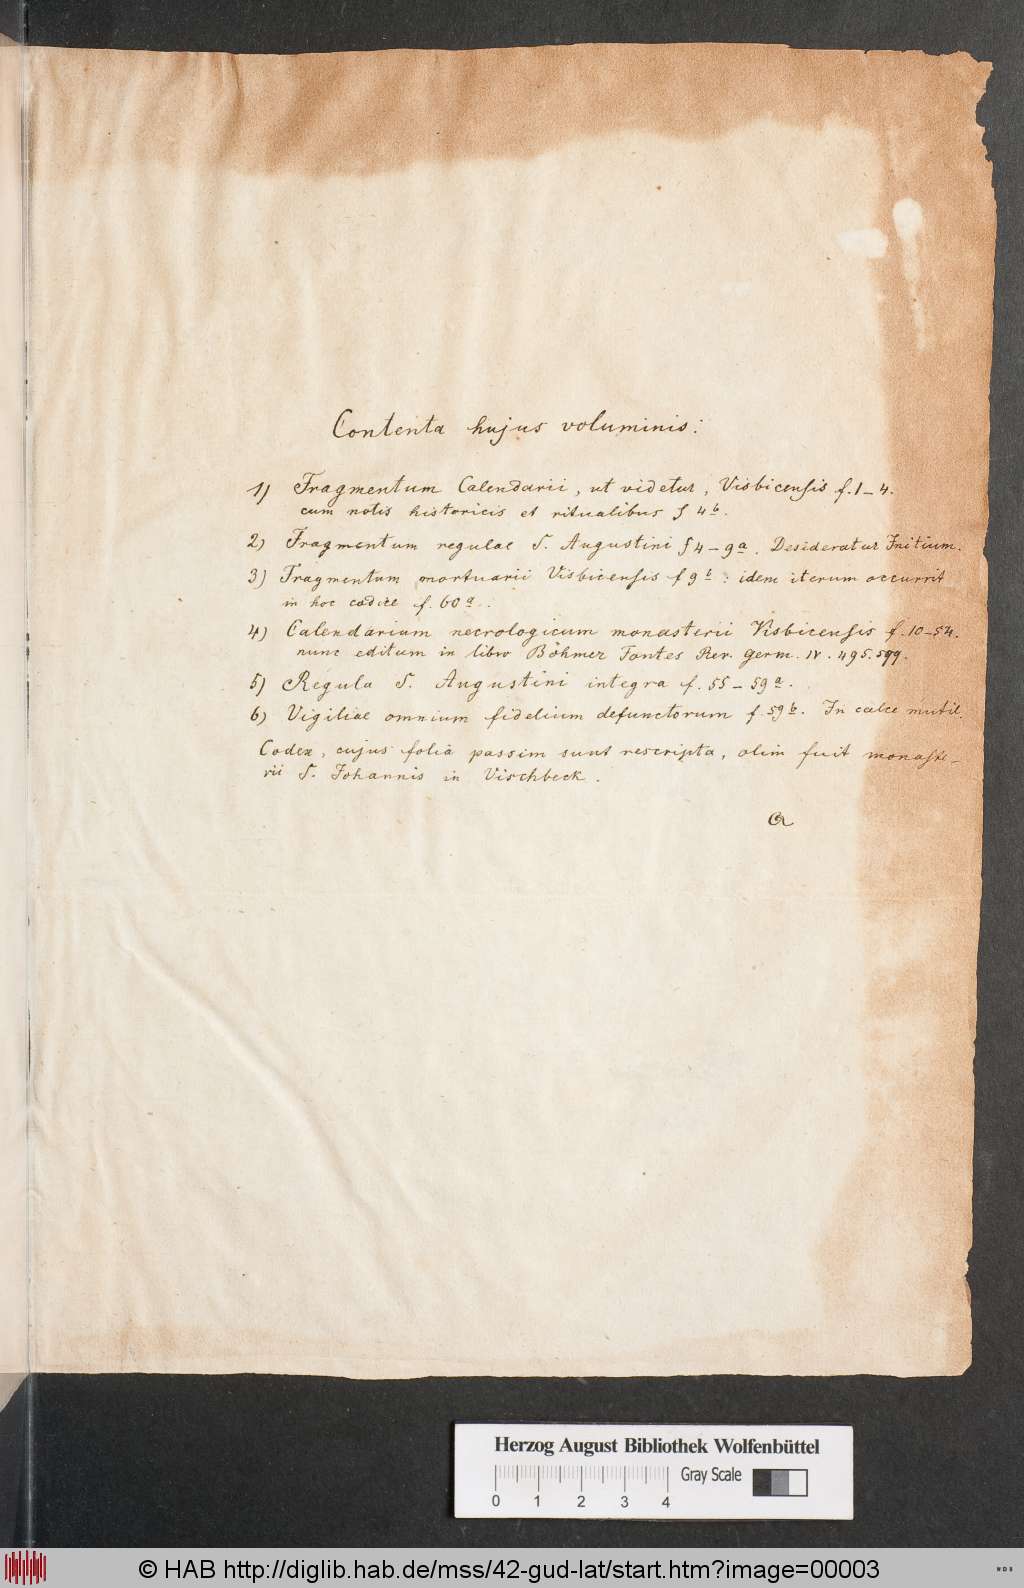 Contenta hujus voluminis:
1) Fragmentum Calendarii, ut videtur, Visbicensis f. 1–4.
cum notis historicis et ritualibus f 4b.
2) Fragmentum regulae S. Augustini f 4–9a. Desideratur Initium.
3) Fragmentum mortuarii Visbicensis f 9b: idem iterum occurrit
in hoc codice f. 60a.
4) Calendarium necrologicum monasterii Visbicensis f. 10–54.
nunc editum in libro Böhmer Fontes Rer. Germ. IV. 495. 599.
5) Regula S. Augustini integra f. 55–59a.
6) Vigiliae omnium fidelium defunctorum f. 59b. In calce mutil.
Codex, cujus folia passim sunt rescripta, olim fuit monaste-
rii S. Johannis in Vischbeck.
Herzog August Bibliothek Wolfenbüttel
Gray Scale
0 1 2 3 4
© HAB http://diglib.hab.de/mss/42-gud-lat/start.htm?image=00003